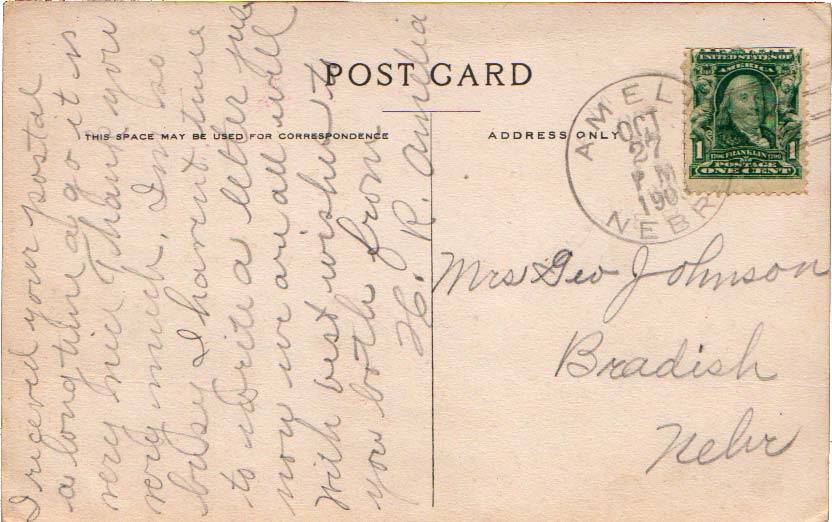 POST CARD
THIS SPACE MAY BE USED FOR CORRESPONDENCE
ADDRESS ONLY
AMELIA
OCT
27
P M
190
NEBR
UNITED STATES OF
AMERICA
1 1
1706 FRANKLIN 1790
POSTAGE
ONE CENT
I receved your postal
a long time ago it is
very nice Thank you
very much. Im so
busy I havent time
to write a letter just
now we are all well
with best wishes to
you both from
H. R. Amelia
Mrs Geo Johnson
Bradish
Nebr